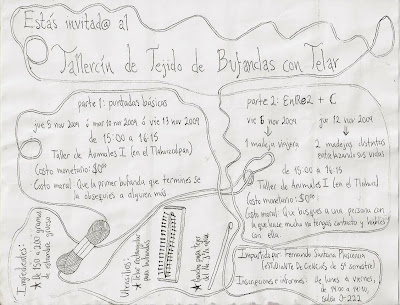 Estás invitad@ al
Tallercín de Tejido de Bufandas con Telar
parte 1: puntadas básicas
jue 5 nov 2009 ó mar 10 nov 2009 ó vie 13 nov 2009
de 15:00 a 16:15
Taller de Animales I (en el Tlahuizcalpan)
Costo monetario: $0⁰⁰
Costo moral: Que la primer bufanda que termines se
la obsequies a alguien más
parte 2: EnRe2 + C
vie 6 nov 2009 jue 12 nov 2009
1 madeja viajera 2 madejas distintas
entrelazando sus vidas
de 15:00 a 16:15
Taller de Animales I (en el Tlahuiz)
Costo monetario: $0⁰⁰
Costo moral: Que busques a una persona con
la que hace mucho no tengas contacto y hables
con ella
Ingredientes:
★ de 150 a 200 gramos
de estambre grueso
Utensilios:
★ Telar rectangular
para bufandas
★ Gancho para tejer
Impartido por: Fernanda Santana Plascencia
(ESTUDIANTE DE CIENCIAS de 5° semestre)
Inscripciones e informes: de lunes a viernes,
de 14:00 a 14:30,
salón O-222